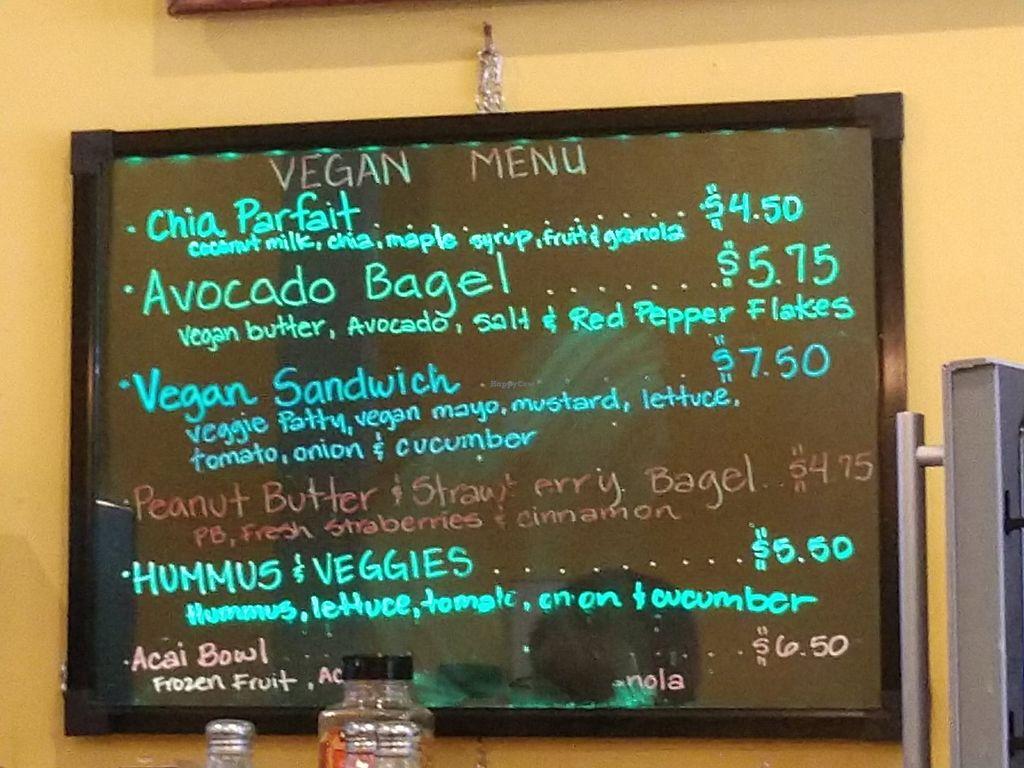 VEGAN MENU
· Chia Parfait ........... $4.50
coconut milk, chia, maple syrup, fruit & granola
· Avocado Bagel ....... $5.75
vegan butter, Avocado, salt & Red Pepper Flakes
· Vegan Sandwich ........... $7.50
veggie Patty, vegan mayo, mustard, lettuce,
tomato, onion & cucumber
· Peanut Butter & Strawberry Bagel .. $4.75
PB, Fresh straberries & cinnamon
· HUMMUS & VEGGIES .......... $5.50
Hummus, lettuce, tomato, onion & cucumber
· Acai Bowl ..... $6.50
Frozen Fruit,
HappyCow